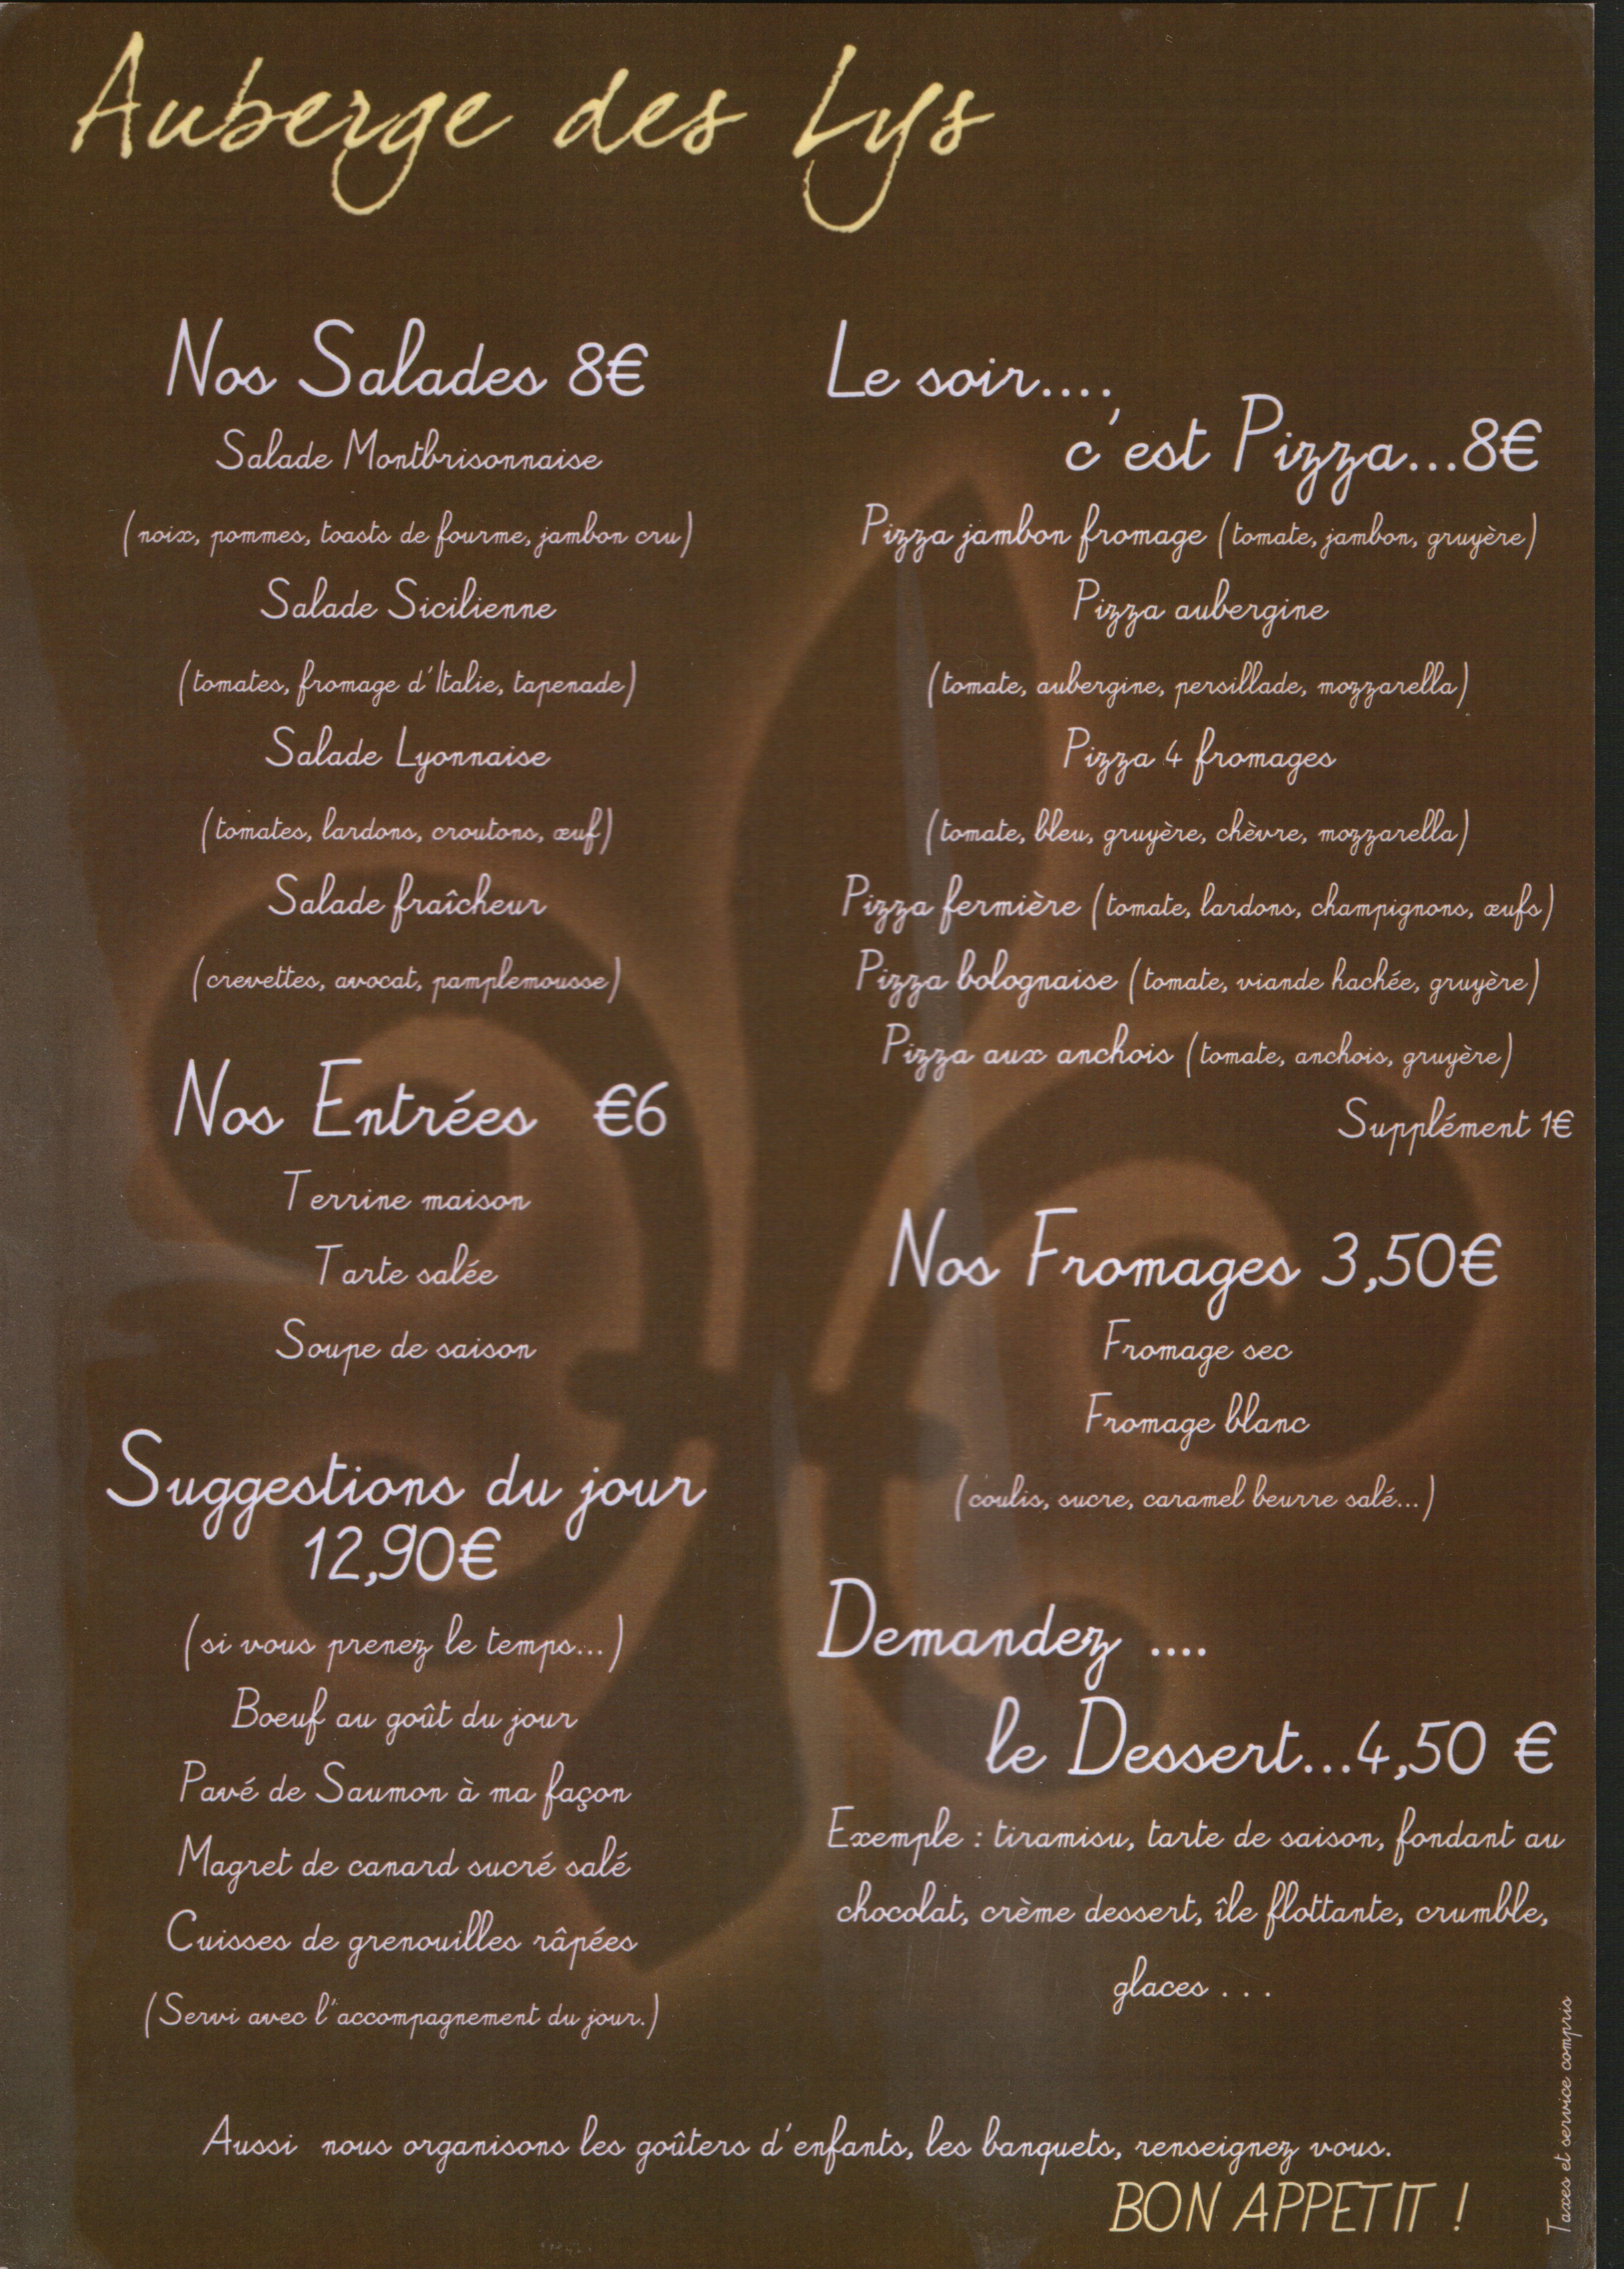 Auberge des Lys
Nos Salades 8€
Salade Montbrisonnaise
(noix, pommes, toasts de fourme, jambon cru)
Salade Sicilienne
(tomates, fromage d'Italie, tapenade)
Salade Lyonnaise
(tomates, lardons, croutons, œuf)
Salade fraîcheur
(crevettes, avocat, pamplemousse)
Nos Entrées €6
Terrine maison
Tarte salée
Soupe de saison
Suggestions du jour
12,90€
(si vous prenez le temps...)
Boeuf au goût du jour
Pavé de Saumon à ma façon
Magret de canard sucré salé
Cuisses de grenouilles râpées
(Servi avec l'accompagnement du jour.)
Le soir....
c'est Pizza...8€
Pizza jambon fromage (tomate, jambon, gruyère)
Pizza aubergine
(tomate, aubergine, persillade, mozzarella)
Pizza 4 fromages
(tomate, bleu, gruyère, chèvre, mozzarella)
Pizza fermière (tomate, lardons, champignons, œufs)
Pizza bolognaise (tomate, viande hachée, gruyère)
Pizza aux anchois (tomate, anchois, gruyère)
Supplément 1€
Nos Fromages 3,50€
Fromage sec
Fromage blanc
(coulis, sucre, caramel beurre salé...)
Demandez ....
le Dessert...4,50 €
Exemple : tiramisu, tarte de saison, fondant au
chocolat, crème dessert, île flottante, crumble,
glaces . . .
Aussi nous organisons les goûters d'enfants, les banquets, renseignez vous.
BON APPETIT !
Taxes et service compris